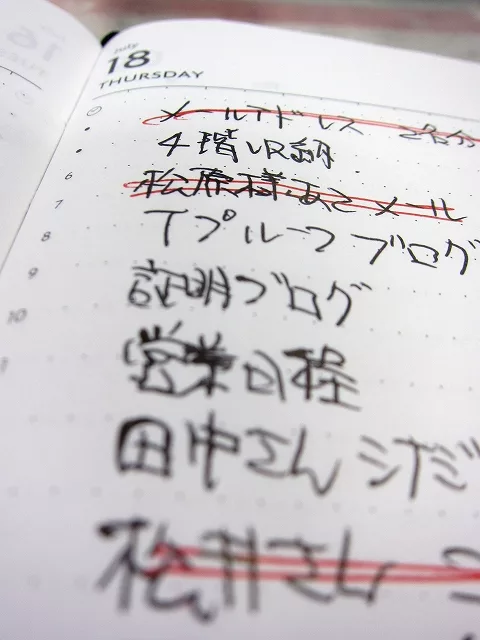 July
18
THURSDAY
メールアドレス 2名分
4階収納
6
松原様 あさ メール
7
Tプルーフ ブログ
8
証明ブログ
9
営業日程
10
田中さん
松井さん